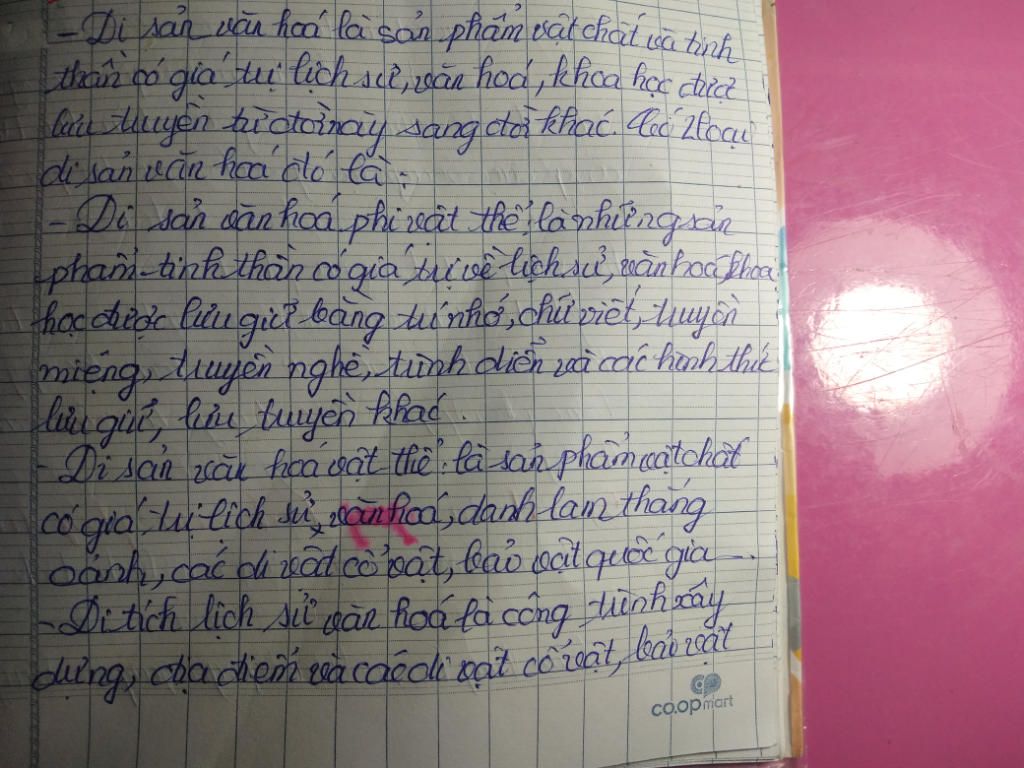 - Di sản văn hoá là sản phẩm vật chất và tinh
thần có giá trị lịch sử, văn hoá, khoa học được
lưu truyền từ đời này sang đời khác. Có 2 loại
di sản văn hoá đó là:
- Di sản văn hoá phi vật thể: là những sản
phẩm tinh thần có giá trị về lịch sử, văn hoá khoa
học được lưu giữ bằng trí nhớ, chữ viết, truyền
miệng, truyền nghề, trình diễn và các hình thức
lưu giữ, lưu truyền khác.
- Di sản văn hoá vật thể: là sản phẩm vật chất
có giá trị lịch sử, văn hoá, danh lam thắng
cảnh, các di vật cổ vật, bảo vật quốc gia
- Di tích lịch sử văn hoá là công trình xây
dựng, địa điểm và các di vật cổ vật, bảo vật
co.opmart